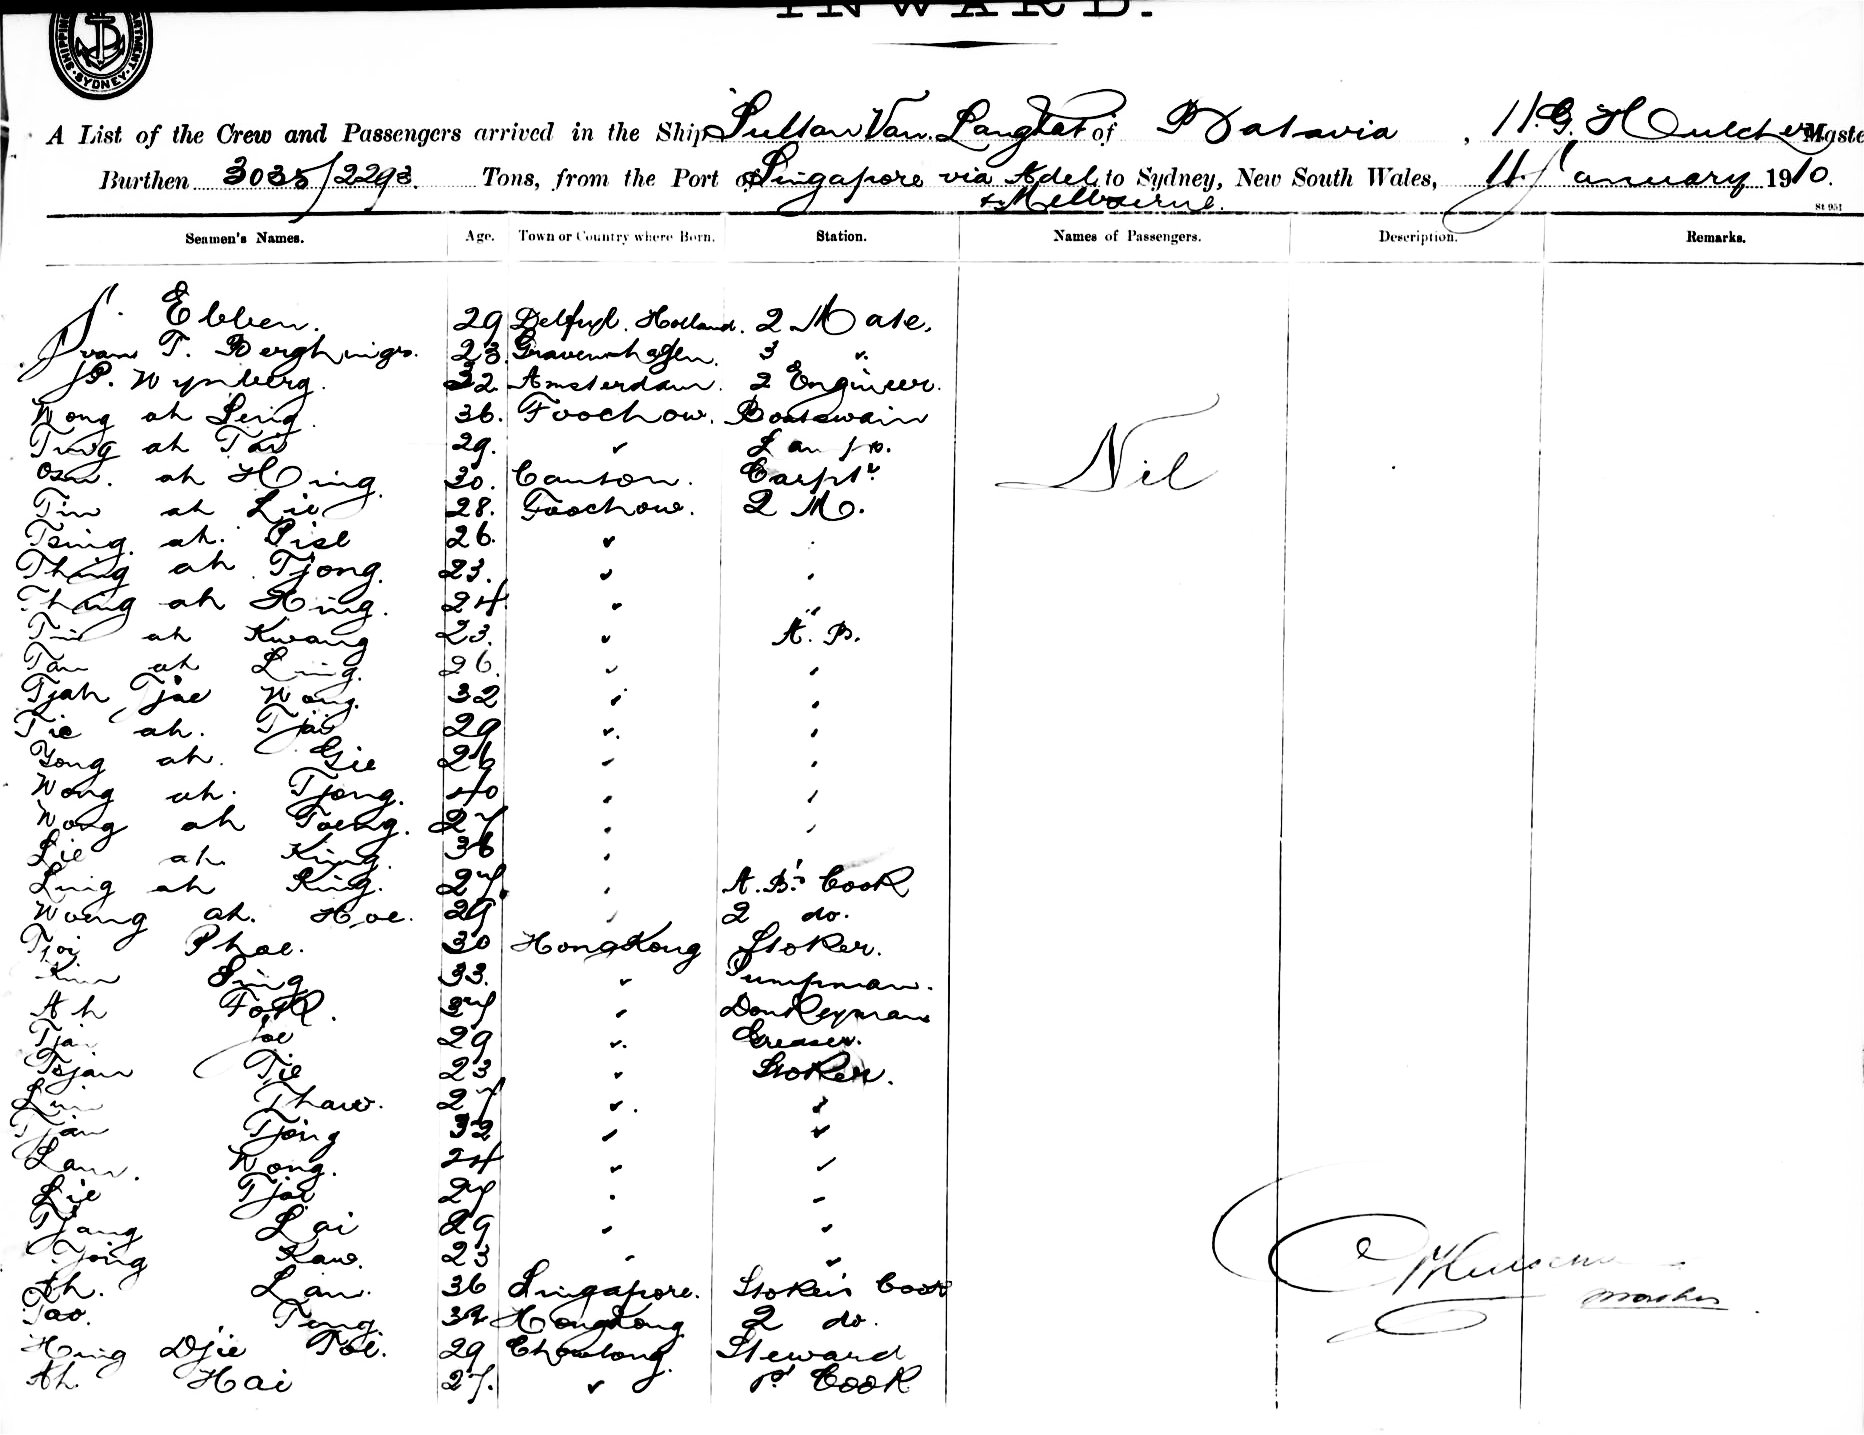 INWARD.
SHIPPING DEPARTMENT SYDNEY
A List of the Crew and Passengers arrived in the Ship Sultan Van Langkat of Batavia, H.G. Master
Burthen 3035/2293. Tons, from the Port of Singapore via Adel. to Sydney, New South Wales, 11 January 1910.
& Melbourne.
St 951
Seamen's Names. Age. Town or Country where Born. Station. Names of Passengers. Description. Remarks.
J. Ebben. 29 Delfzyl. Holland. 2 Mate.
23. 3 "
P. Wynberg. 32 Amsterdam. 2 Engineer.
Wong ah Seng 36. Foochow. Boatswain
Ting ah Tai 29. " Lamp.
ah Hing. 30. Canton. Carptr.
Tin ah Lie 28. Foochow. 2 M.
Tsing. ah. Pise 26. " "
Thing ah Tjong. 23. " "
Thing ah Hing. 24 " "
Tin ah Kwang 23. " A. B.
Tan ah Ling. 26. " "
Tjah Tjae Wong. 32 " "
Tie ah. Tjai 29 " "
Yong ah. Gie 26 " "
Wong ah. Tjong. 40 " "
Wong ah Toeng. 27 " "
Lie ah. King. 36 "
Ling ah King. 27. " A. B.'s Cook
Woeng ah. Hoe. 29 " 2 do.
Tjoi Phoe. 30 HongKong Stoker.
Kim Sing 33. " Pumpman.
Ah Fok. 37 " Donkeyman
Tjai Joe 29 " Greaser.
Tsjan Tie 23 " Stoker.
Lim Thaw. 27 " "
Tjan Tjong 32 " "
Lam. Wong. 24 " "
Lie Tjai 27 " "
Tjang Lai 29 " "
Tjong Kaw. 23 " "
Ah. Lan. 36 Singapore. Stoker's Cook
Tao. Teng. 32 HongKong 2 do.
Hing Djie Toe. 29 Steward
Ah. Hai 27. " Cook
Nil
master